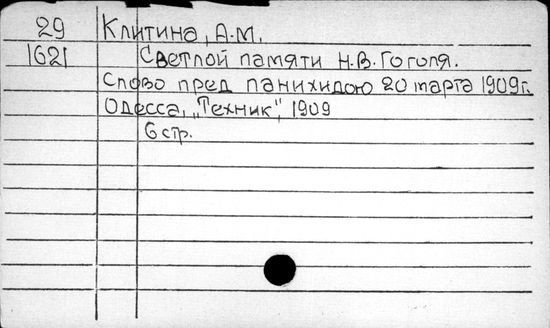 29 Клитина, А.М.
1621 Светлой памяти Н.В. Гоголя.
Слово пред панихидою 20 марта 1909 г.
Одесса, „Техник", 1909
6 стр.